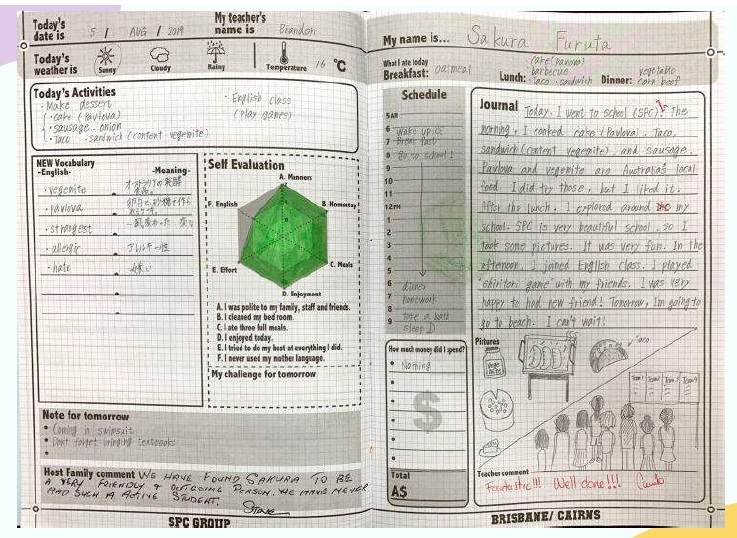 Today's date is 5 / AUG / 2019
My teacher's name is Brandon
Today's weather is Sunny Cloudy Rainy Temperature 16 °C
Today's Activities
· Make dessert
· cake (Pavlova)
· sausage · onion
· Taco · sandwich (content vegemite)
· English class
(play games)
NEW Vocabulary
-English- -Meaning-
· vegemite
· pavlova
· strangest
· allergic アレルギー性
· hate 嫌い
Self Evaluation
A. Manners
B. Homestay
C. Meals
D. Enjoyment
E. Effort
F. English
A. I was polite to my family, staff and friends.
B. I cleaned my bed room.
C. I ate three full meals.
D. I enjoyed today.
E. I tried to do my best at everything I did.
F. I never used my mother language.
My challenge for tomorrow
Note for tomorrow
· Coming in swimsuit
· Dont forget bringing textbooks
Host Family comment WE HAVE FOUND SAKURA TO BE
A VERY FRIENDLY & OUTGOING PERSON. WE HAVE NEVER
HAD SUCH A ACTIVE STUDENT.
Steve
SPC GROUP
My name is... Sakura Furuta
What I ate today
Breakfast: oatmeal
Lunch: cake (pavlova) barbecue Taco · sandwich
Dinner: vegetable corn beef
Schedule
5AM
6 wake up
7 Break fast
8 go to school
9
10
11
12PM
1
2
3
4
5
6 dinner
7 homework
8 take a bath
9 sleep
How much money did I spend?
· Nothing
$
Total
A$
Journal Today, I went to school (SPC). In the
morning, I cooked cake (Pavlova), Taco,
sandwich (content vegemite) and sausage.
Pavlova and vegemite are Australia's local
food. I did try those, but I liked it.
After the lunch, I explored around my
school. SPC is very beautiful school, so I
took some pictures. It was very fun. In the
afternoon, I joined English class. I played
shiritori game with my friends. I was very
happy to had new friend! Tomorrow, Im going to
go to beach. I can't wait!
Pictures
Taco
Team 1 Team 2 Team 3 Team 4
Teacher comment
Fantastic!!! Well done!!!
BRISBANE/ CAIRNS